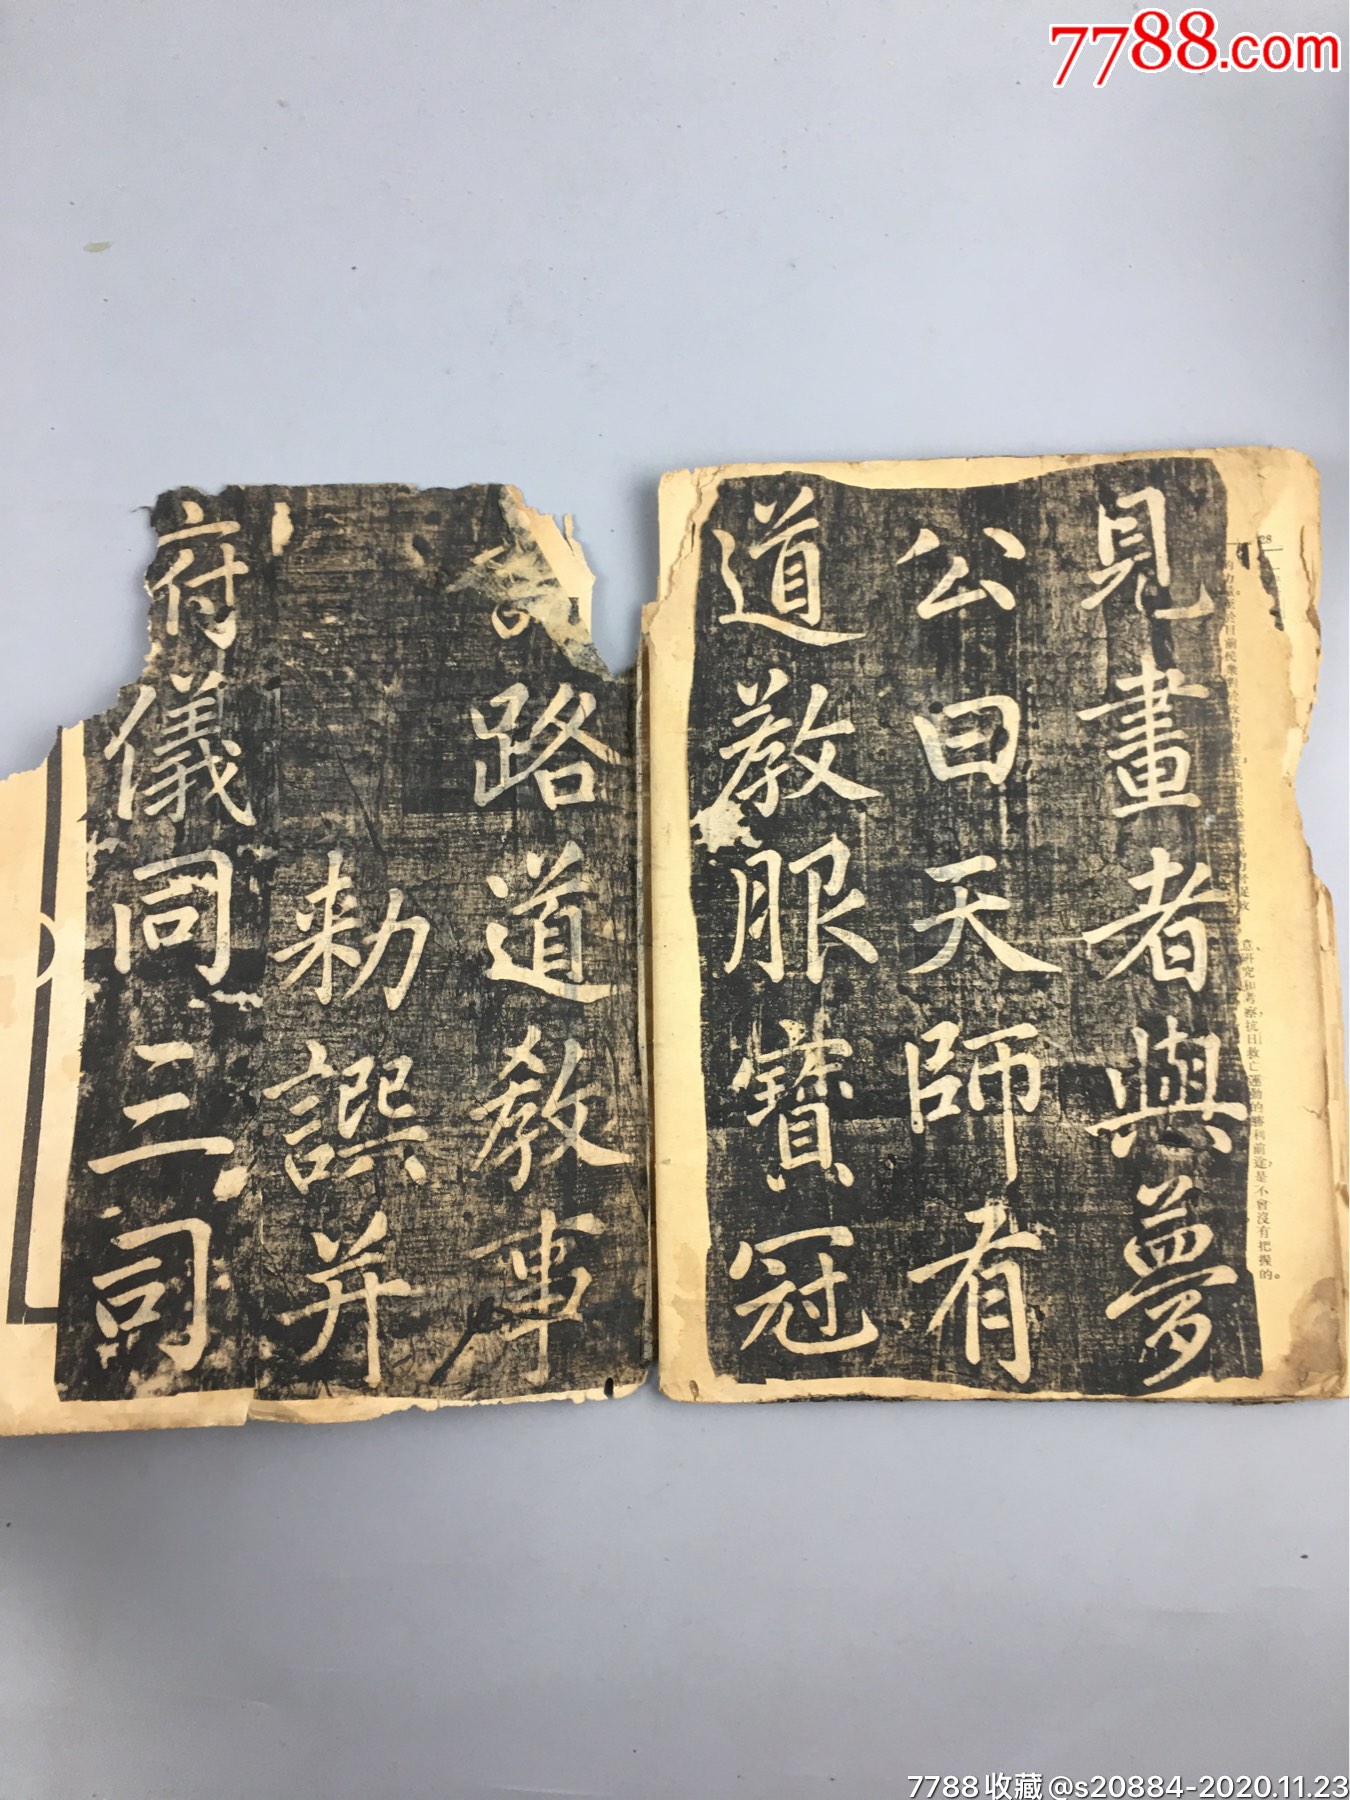 7788.com
見畫者與夢
公曰天師有
道教服寶冠
路道教事
勅譔并
府儀同三司
28
意研究和考察,抗日救亡運動的勝利前途,是不會沒有把握的。
7788收藏@s20884-2020.11.23